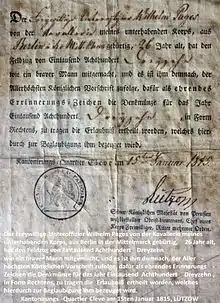 Der Freiwillige Unteroffizier Wilhelm Pages
von der Kavallerie meines unterhabenden Korps, aus
Berlin in der Mittelmark gebürtig, 26 Jahr alt, hat den
Feldzug von Eintausend Achthundert Dreyzehn
wie ein braver Mann mitgemacht, und es ist ihm demnach, der
Allerhöchsten Königlichen Vorschrift zufolge, dafür als ehrendes
Erinnerungs-Zeichen die Denkmünze für das Jahr
Eintausend Achthundert Dreyzehn in Form
Rechtens, zu tragen die Erlaubniß ertheilt worden, welches hier
durch zur Beglaubigung ihm bezeuget wird.
Kantonirungs-Quartier Cleve am 15ten Januar 1815
Lützow
Seiner Königlichen Majestät von Preußen
Der Freiwillige Unteroffizier Wilhelm Pages von der Kavallerie meines
unterhabenden Korps, aus Berlin in der Mittelmark gebürtig, 26 Jahr alt,
hat den Feldzug von Eintausend Achthundert Dreyzehn
wie ein braver Mann mitgemacht, und es ist ihm demnach, der Aller
höchsten Königlichen Vorschrift zufolge, dafür als ehrendes Erinnerungs
Zeichen die Denkmünze für das Jahr Eintausend Achthundert Dreyzehn
in Form Rechtens, zu tragen die Erlaubniß ertheilt worden, welches
hierdurch zur Beglaubigung ihm bezeuget wird.
Kantonirungs-Quartier Cleve am 15ten Januar 1815, LÜTZOW